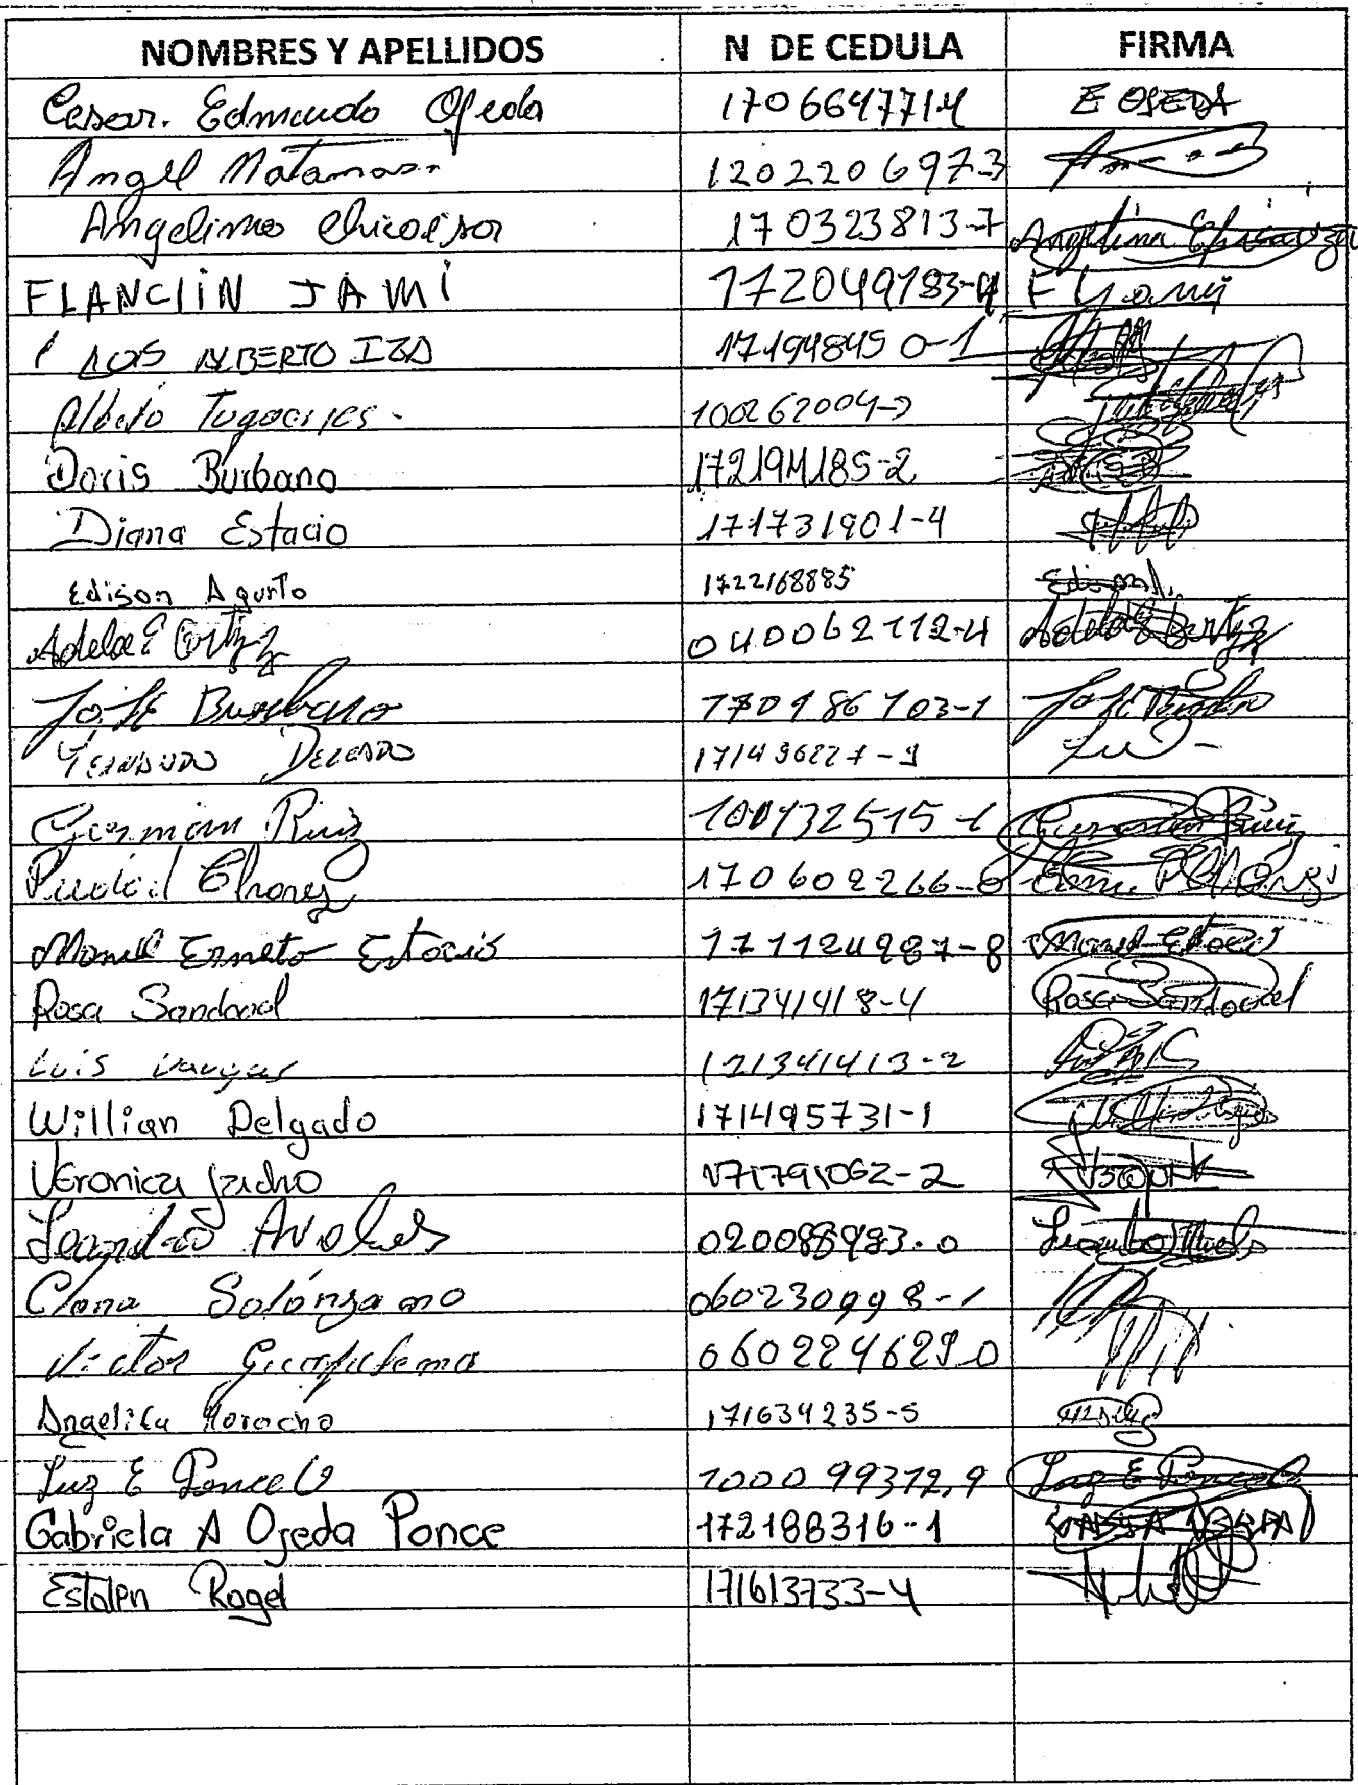 NOMBRES Y APELLIDOS N DE CEDULA FIRMA
Cesar. Edmundo Ojeda 170664771-4 E OJEDA
Angel Matamoros 120220697-3
Angelina Chicaisa 170323813-7 Angelina Chicaiza
FLANCLIN JAMI 172049183-4 F Jami
LUIS ALBERTO IZA 17194845 0-1
Alberto 100262004-
Doris Burbano 172194185-2
Diana Estacio 171731901-4
Edison Agurto 1722168885 Edison A.
Adela E Ortiz 040062112-4 Adela E Ortiz
José Burbano 170186103-1 José Burbano
Delgado 171436227-9
German Ruiz 100132515-1 German Ruiz
170602266-0
Manuel Ernesto Estacio 171124987-8 Manuel Estacio
Rosa Sandoval 171341418-4 Rosa Sandoval
Luis Vargas 171341413-2
Willian Delgado 171495731-1
Veronica 171791062-2
Leandro 020088983-0
Solórzano 060230998-1
Victor 060224629-0
Angelica Morocho 171634235-5
Luz E Ponce 100099372,9 Luz E Ponce
Gabriela A Ojeda Ponce 172188316-1
Estalen Rogel 171613733-4